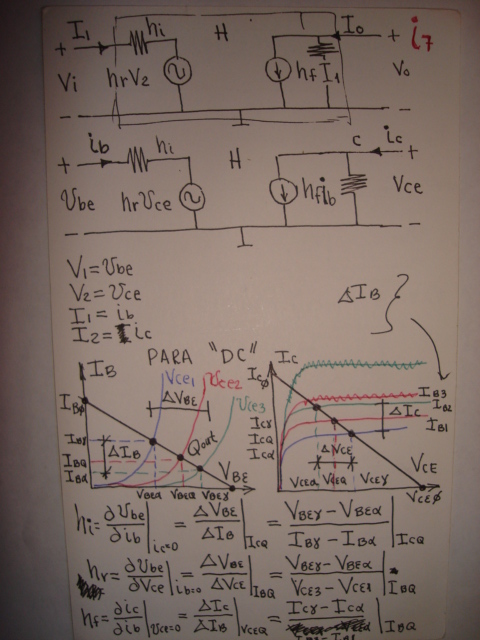 I₁ hi H Io i₇
+ +
Vi hrV₂ hf I₁ Vo
− −
ib hi c ic
+ H +
Vbe hrVce hfib Vce
− −
V₁ = Vbe
V₂ = Vce
I₁ = ib
I₂ = ic
ΔIB
PARA "DC"
IB Vce1 Vce2 Vce3 ΔVBE
IBØ IBγ IBQ IBα ΔIB Qcut VBE
VBEα VBEQ VBEγ
Ic IcØ Icγ IcQ Icα
IB3 IB2 IB1 ΔIc ΔVCE
VCEα VCEQ VCEγ VCE VCEØ
hi = ∂Vbe/∂ib |ic=0 = ΔVBE/ΔIB |ICQ = VBEγ − VBEα / IBγ − IBα |ICQ
hr = ∂Vbe/∂Vce |ib=0 = ΔVBE/ΔVCE |IBQ = VBEγ − VBEα / VCE3 − VCE1 |IBQ
hf = ∂ic/∂ib |Vce=0 = ΔIc/ΔIB |VCEQ = Icγ − Icα |IBQ